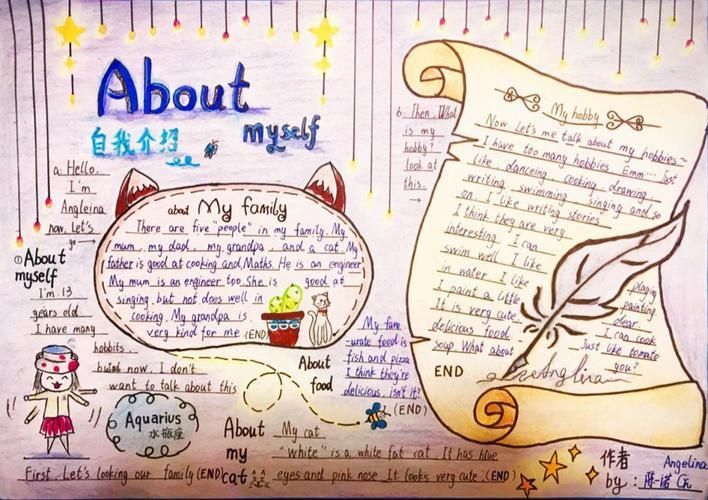 About
自我介绍
myself
a. Hello.
I'm
Angleina
now. Let's
go →
①About
myself
I'm 13
years old
I have many
hobbits.
but now. I don't
want to talk about this
Aquarius
水瓶座
First. Let's looking our family (END)
about My family
There are five "people" in my family. My
mum, my dad, my grandpa, and a cat. My
father is good at cooking and Maths. He is an engineer
My mum is an engineer too. She is good at
singing. but not does well in
cooking. My grandpa is
very kind for me. (END)
About
food
My favo
-urate food is
fish and pizza
I think they're
delicious. isn't it?
(END)
About
my
cat
My cat
"white" is a white fat cat. It has blue
eyes and pink nose. It looks very cute. (END)
b. Then. What
is my
hobby?
look at
this. →
My hobby
Now. Let's me talk about my hobbies~
I have too many hobbies. Emm... Just
like danceing cooking drawing
writing swimming singing and so
on. I like writing stories
I think they are very
interesting. I can
swim well. I like playing
in water. I like painting
I paint a little dear
It is very cute. I can cook
delicious food. Just like tomato
soup. What about you?
END
Anglina
作者 Angelina
by: 陈一诺